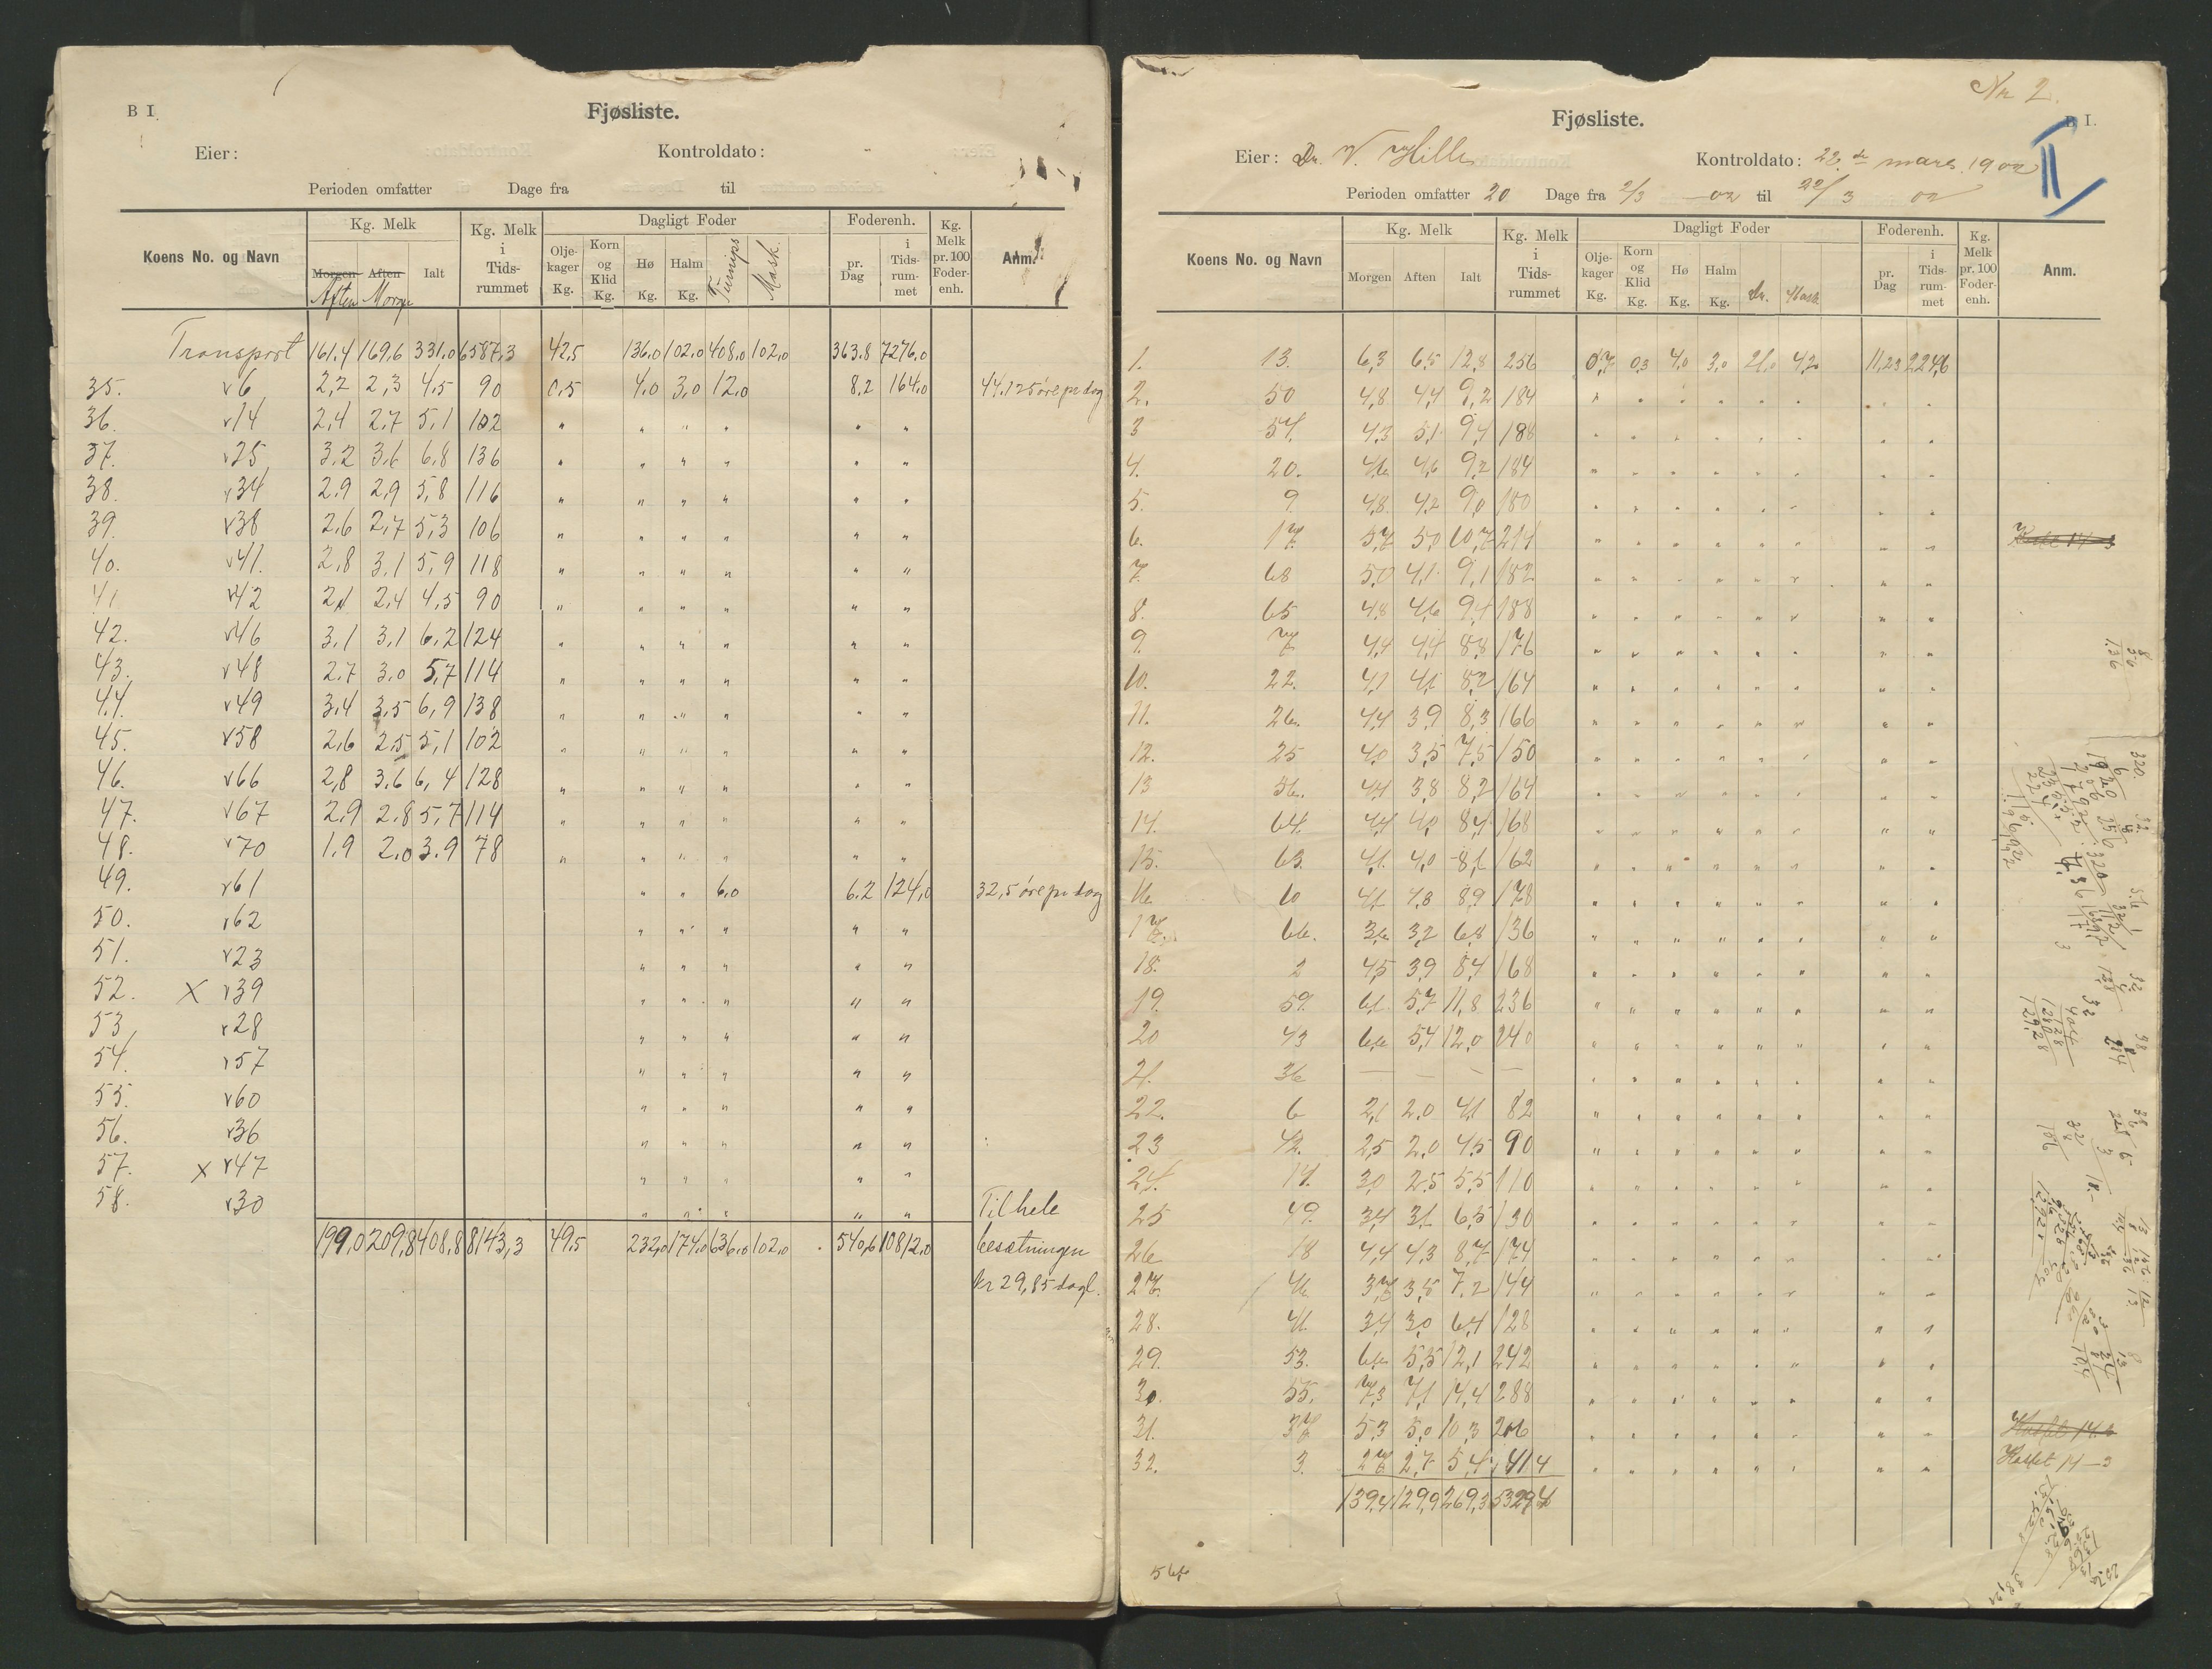 B I.
Fjøsliste.
Eier: Kontroldato:
Perioden omfatter Dage fra til
Koens No. og Navn Kg. Melk Morgen Aften Ialt Aften Morgen Kg. Melk i Tids-rummet Dagligt Foder Olje-kager Kg. Korn og Klid Kg. Hø Kg. Halm Kg. Turnips Mask. Foderenh. pr. Dag i Tids-rum-met Kg. Melk pr. 100 Foder-enh. Anm.
Transport 161,4 169,6 331,0 6587,3 42,5 136,0 102,0 408,0 102,0 363.8 7276,0
35. v6 2,2 2,3 4,5 90 0,5 4,0 3,0 12,0 8,2 164,0 44,125 øre pr dag
36. v14 2,4 2,7 5,1 102 " " " " " "
37. v25 3,2 3,6 6,8 136 " " " " " "
38. v34 2.9 2,9 5,8 116 " " " " " "
39. v38 2,6 2,7 5,3 106 " " " " " "
40. v41. 2,8 3,1 5,9 118 " " " " " "
41 v42 2,1 2,4 4,5 90 " " " " " "
42. v46 3,1 3,1 6,2 124 " " " " " "
43. v48 2,7 3,0 5,7 114 " " " " " "
44. v49 3,4 3,5 6,9 138 " " " " " "
45. v58 2,6 2,5 5,1 102 " " " " " "
46. v66 2,8 3,6 6,4 128 " " " " " "
47. v67 2,9 2,8 5,7 114 " " " " " "
48. v70 1.9 2,0 3.9 78 " " " " " "
49. v61 " " 6,0 6,2 124,0 32,5 øre pr dag
50. v62 " " " " "
51. v23 " " " " "
52. X v39 " " " " "
53 v28 " " " " "
54. v57 " " " " "
55. v60 " " " " "
56. v36 " " " " "
57. X v47 " " " " "
58. v30 " " " " " Til hele
199,0 209,8 408,8 8143,3 49,5 232,0 174,0 636,0 102,0 540,6 10812,0 besætningen
kr 29,85 dagl.
No 2.
B I.
II
Fjøsliste.
Eier: Dr. V. Hille Kontroldato: 22de mars 1902
Perioden omfatter 20 Dage fra 2/3 - 02 til 22/3 02
Koens No. og Navn Kg. Melk Morgen Aften Ialt Kg. Melk i Tids-rummet Dagligt Foder Olje-kager Kg. Korn og Klid Kg. Hø Kg. Halm Kg. Mask Foderenh. pr. Dag i Tids-rum-met Kg. Melk pr. 100 Foder-enh. Anm.
1. 13. 6,3 6,5 12,8 256 0,7 0,3 4,0 3,0 21,0 4,2 11,23 224,6
2. 50 4,8 4,4 9,2 184 " " " " " " " "
3 54. 4,3 5,1 9,4 188 " " " " " " " "
4. 20. 4,6 4,6 9,2 184 " " " " " " " "
5. 9. 4,8 4,2 9,0 180 " " " " " " " "
6. 17. 5,7 5,0 10,7 214 " " " " " " " "
7. 68 5,0 4,1 9,1 182 " " " " " " " "
8. 65 4,8 4,6 9,4 188 " " " " " " " "
9. 7 4,4 4,4 8,8 176 " " " " " " " "
10. 22. 4,1 4,1 8,2 164 " " " " " " " "
11. 26. 4,4 3,9 8,3 166 " " " " " " " "
12. 25 4,0 3,5 7,5 150 " " " " " " " "
13 56. 4,4 3,8 8,2 164 " " " " " " " "
14. 64. 4,4 4,0 8,4 168 " " " " " " " "
15. 63. 4,1 4,0 8,1 162 " " " " " " " "
16 10 4,1 4,8 8,9 178 " " " " " " " "
17. 66. 3,6 3,2 6,8 136 " " " " " " " "
18. 2 4,5 3,9 8,4 168 " " " " " " " "
19. 59. 6,1 5,7 11,8 236 " " " " " " " "
20 43 6,6 5,4 12,0 240 " " " " " " " "
21. 36 — — — — " " " " " " " "
22. 6 2,1 2,0 4,1 82 " " " " " " " "
23 42. 2,5 2,0 4,5 90 " " " " " " " "
24. 14. 3,0 2,5 5,5 110 " " " " " " " "
25 49. 3,4 3,1 6,5 130 " " " " " " " "
26 18 4,4 4,3 8,7 174 " " " " " " " "
27. 46 3,7 3,5 7,2 144 " " " " " " " "
28. 41. 3,4 3,0 6,4 128 " " " " " " " "
29. 53. 6,6 5,5 12,1 242 " " " " " " " "
30. 55. 7,3 7,1 14,4 288 " " " " " " " "
31. 37 5,3 5,0 10,3 206 " " " " " " " "
32. 3. 2,7 2,7 5,4 41,4 " " " " " " " " Kastet 14-3
139,4 129,9 269,3 5329,4